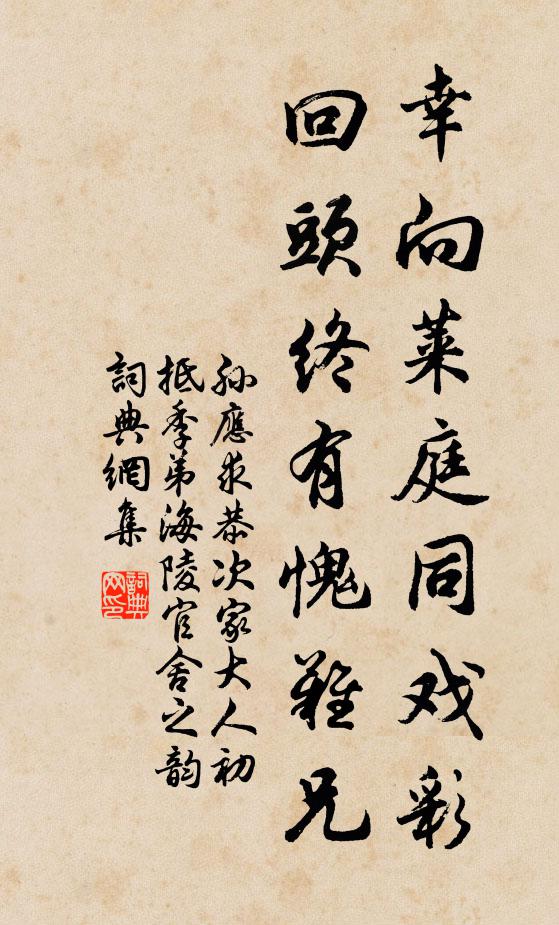 幸向莱庭同戏彩
回頭終有愧難兄
孫應求恭次家大人初
抵季弟海陵官舍之韵
詞典網集
詞典
网印